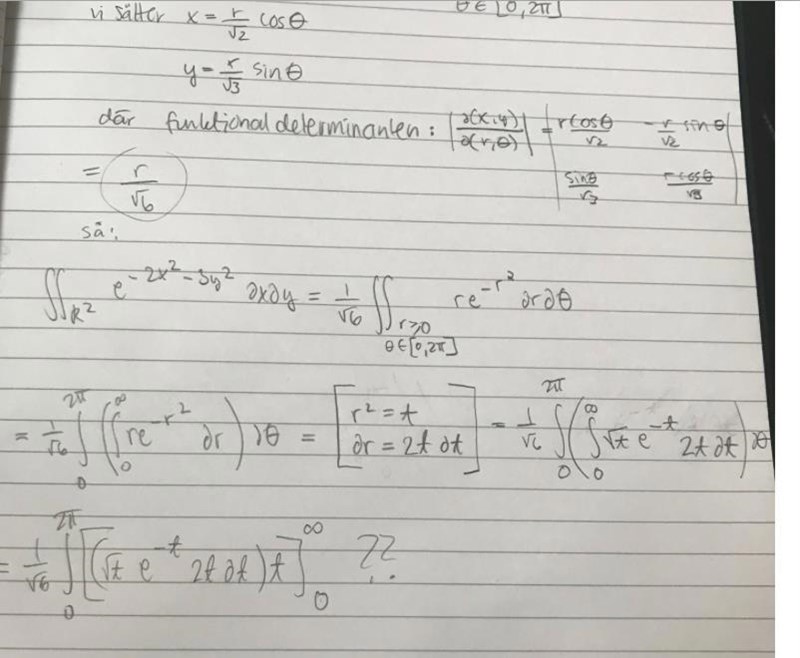 θ∈[0,2π]
vi sätter x = r/√2 cosθ
y = r/√3 sinθ
där funktionaldeterminanten: |∂(x,y)/∂(r,θ)| = | rcosθ/√2   -r/√2 sinθ |
| sinθ/√3   rcosθ/√3 |
= r/√6
så:
∬_R² e^(-2x²-3y²) ∂x∂y = 1/√6 ∬_(r≥0, θ∈[0,2π]) re^(-r²) ∂r∂θ
= 1/√6 ∫_0^2π (∫_0^∞ re^(-r²) ∂r) ∂θ = [r² = t, ∂r = 2t ∂t] = 1/√6 ∫_0^2π (∫_0^∞ √t e^(-t) 2t ∂t) ∂θ
= 1/√6 ∫_0^2π [(√t e^(-t) 2t ∂t)t]_0^∞ ??